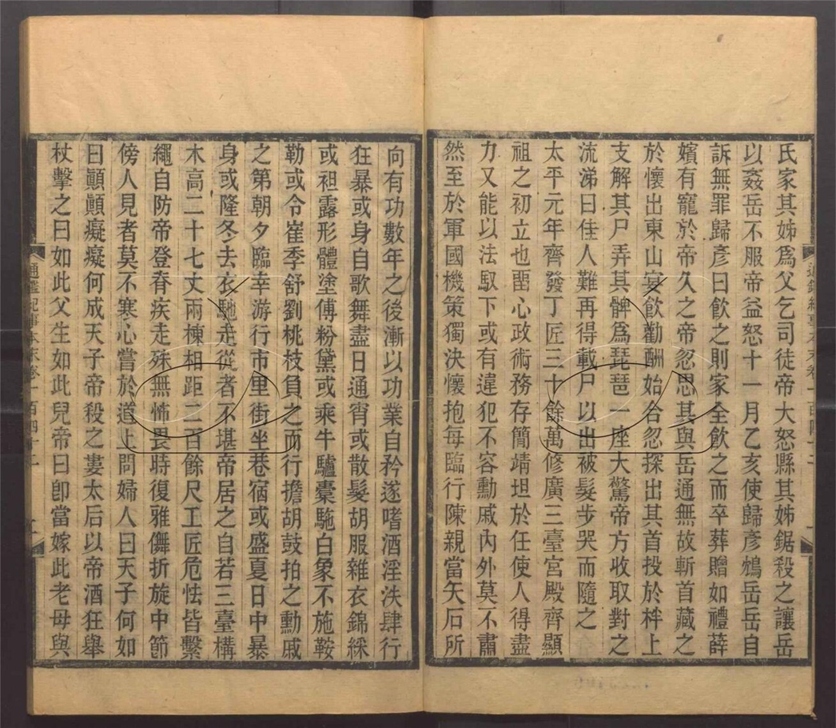 氏家其姊爲父乞司徒帝大怒縣其姊鋸殺之讓岳
以姦岳不服帝益怒十一月乙亥使歸彥鴆岳岳自
訴無罪歸彥曰飲之則家全飲之而卒葬贈如禮薛
嬪有寵於帝久之帝忽思其與岳通無故斬首藏之
於懷出東山宴飲勸酬始合忽探出其首投於柈上
支解其尸弄其髀爲琵琶一座大驚帝方收取對之
流涕曰佳人難再得載尸以出被髮步哭而隨之
太平元年齊發丁匠三十餘萬修廣三臺宮殿齊顯
祖之初立也畱心政術務存簡靖坦於任使人得盡
力又能以法馭下或有違犯不容勳戚內外莫不肅
然至於軍國機策獨決懷抱每臨行陳親當矢石所
向有功數年之後漸以功業自矜遂嗜酒淫泆肆行
狂暴或身自歌舞盡日通宵或散髮胡服雜衣錦綵
或袒露形體塗傅粉黛或乘牛驢橐駞白象不施鞍
勒或令崔季舒劉桃枝負之而行擔胡鼓拍之勳戚
之第朝夕臨幸游行市里街坐巷宿或盛夏日中暴
身或隆冬去衣馳走從者不堪帝居之自若三臺構
木高二十七丈兩棟相距二百餘尺工匠危怯皆繫
繩自防帝登脊疾走殊無怖畏時復雅儛折旋中節
傍人見者莫不寒心嘗於道上問婦人曰天子何如
曰顚顚癡癡何成天子帝殺之婁太后以帝酒狂舉
杖擊之曰如此父生如此兒帝曰卽當嫁此老母與
通鑑紀事本末卷一百四十二